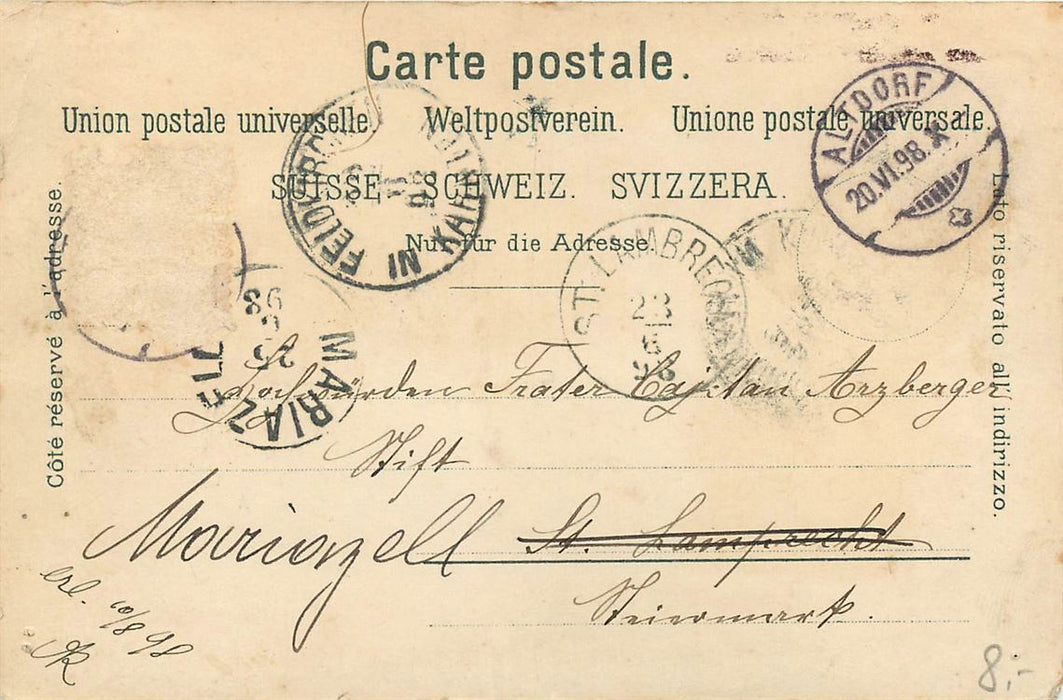 Carte postale.
Union postale universelle. Weltpostverein. Unione postale universale.
SUISSE. SCHWEIZ. SVIZZERA.
Nur für die Adresse.
Côté réservé à l'adresse.
Lato riservato all'indirizzo.
ALTDORF
20.VI.98.X
FELDKIRCH
ST. LAMBRECHT
23
6
98
MARIAZELL
25 6 98
Hochwürden Frater Capitan Arzberger
Stift
Mariazell St. Lamprecht
Steiermark.
erl. 10/8 98
8.-